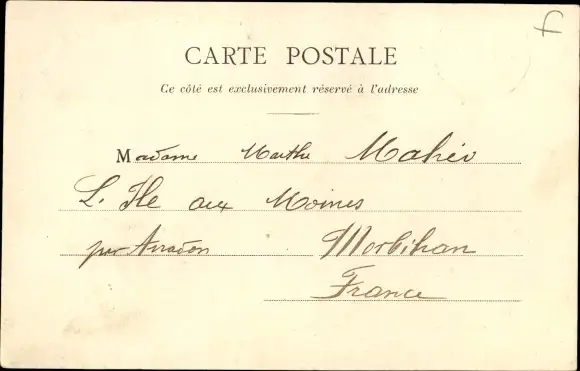 f
CARTE POSTALE
Ce côté est exclusivement réservé à l'adresse
Madame Marthe Mahéo
L'Ile aux Moines
par Arradon Morbihan
France